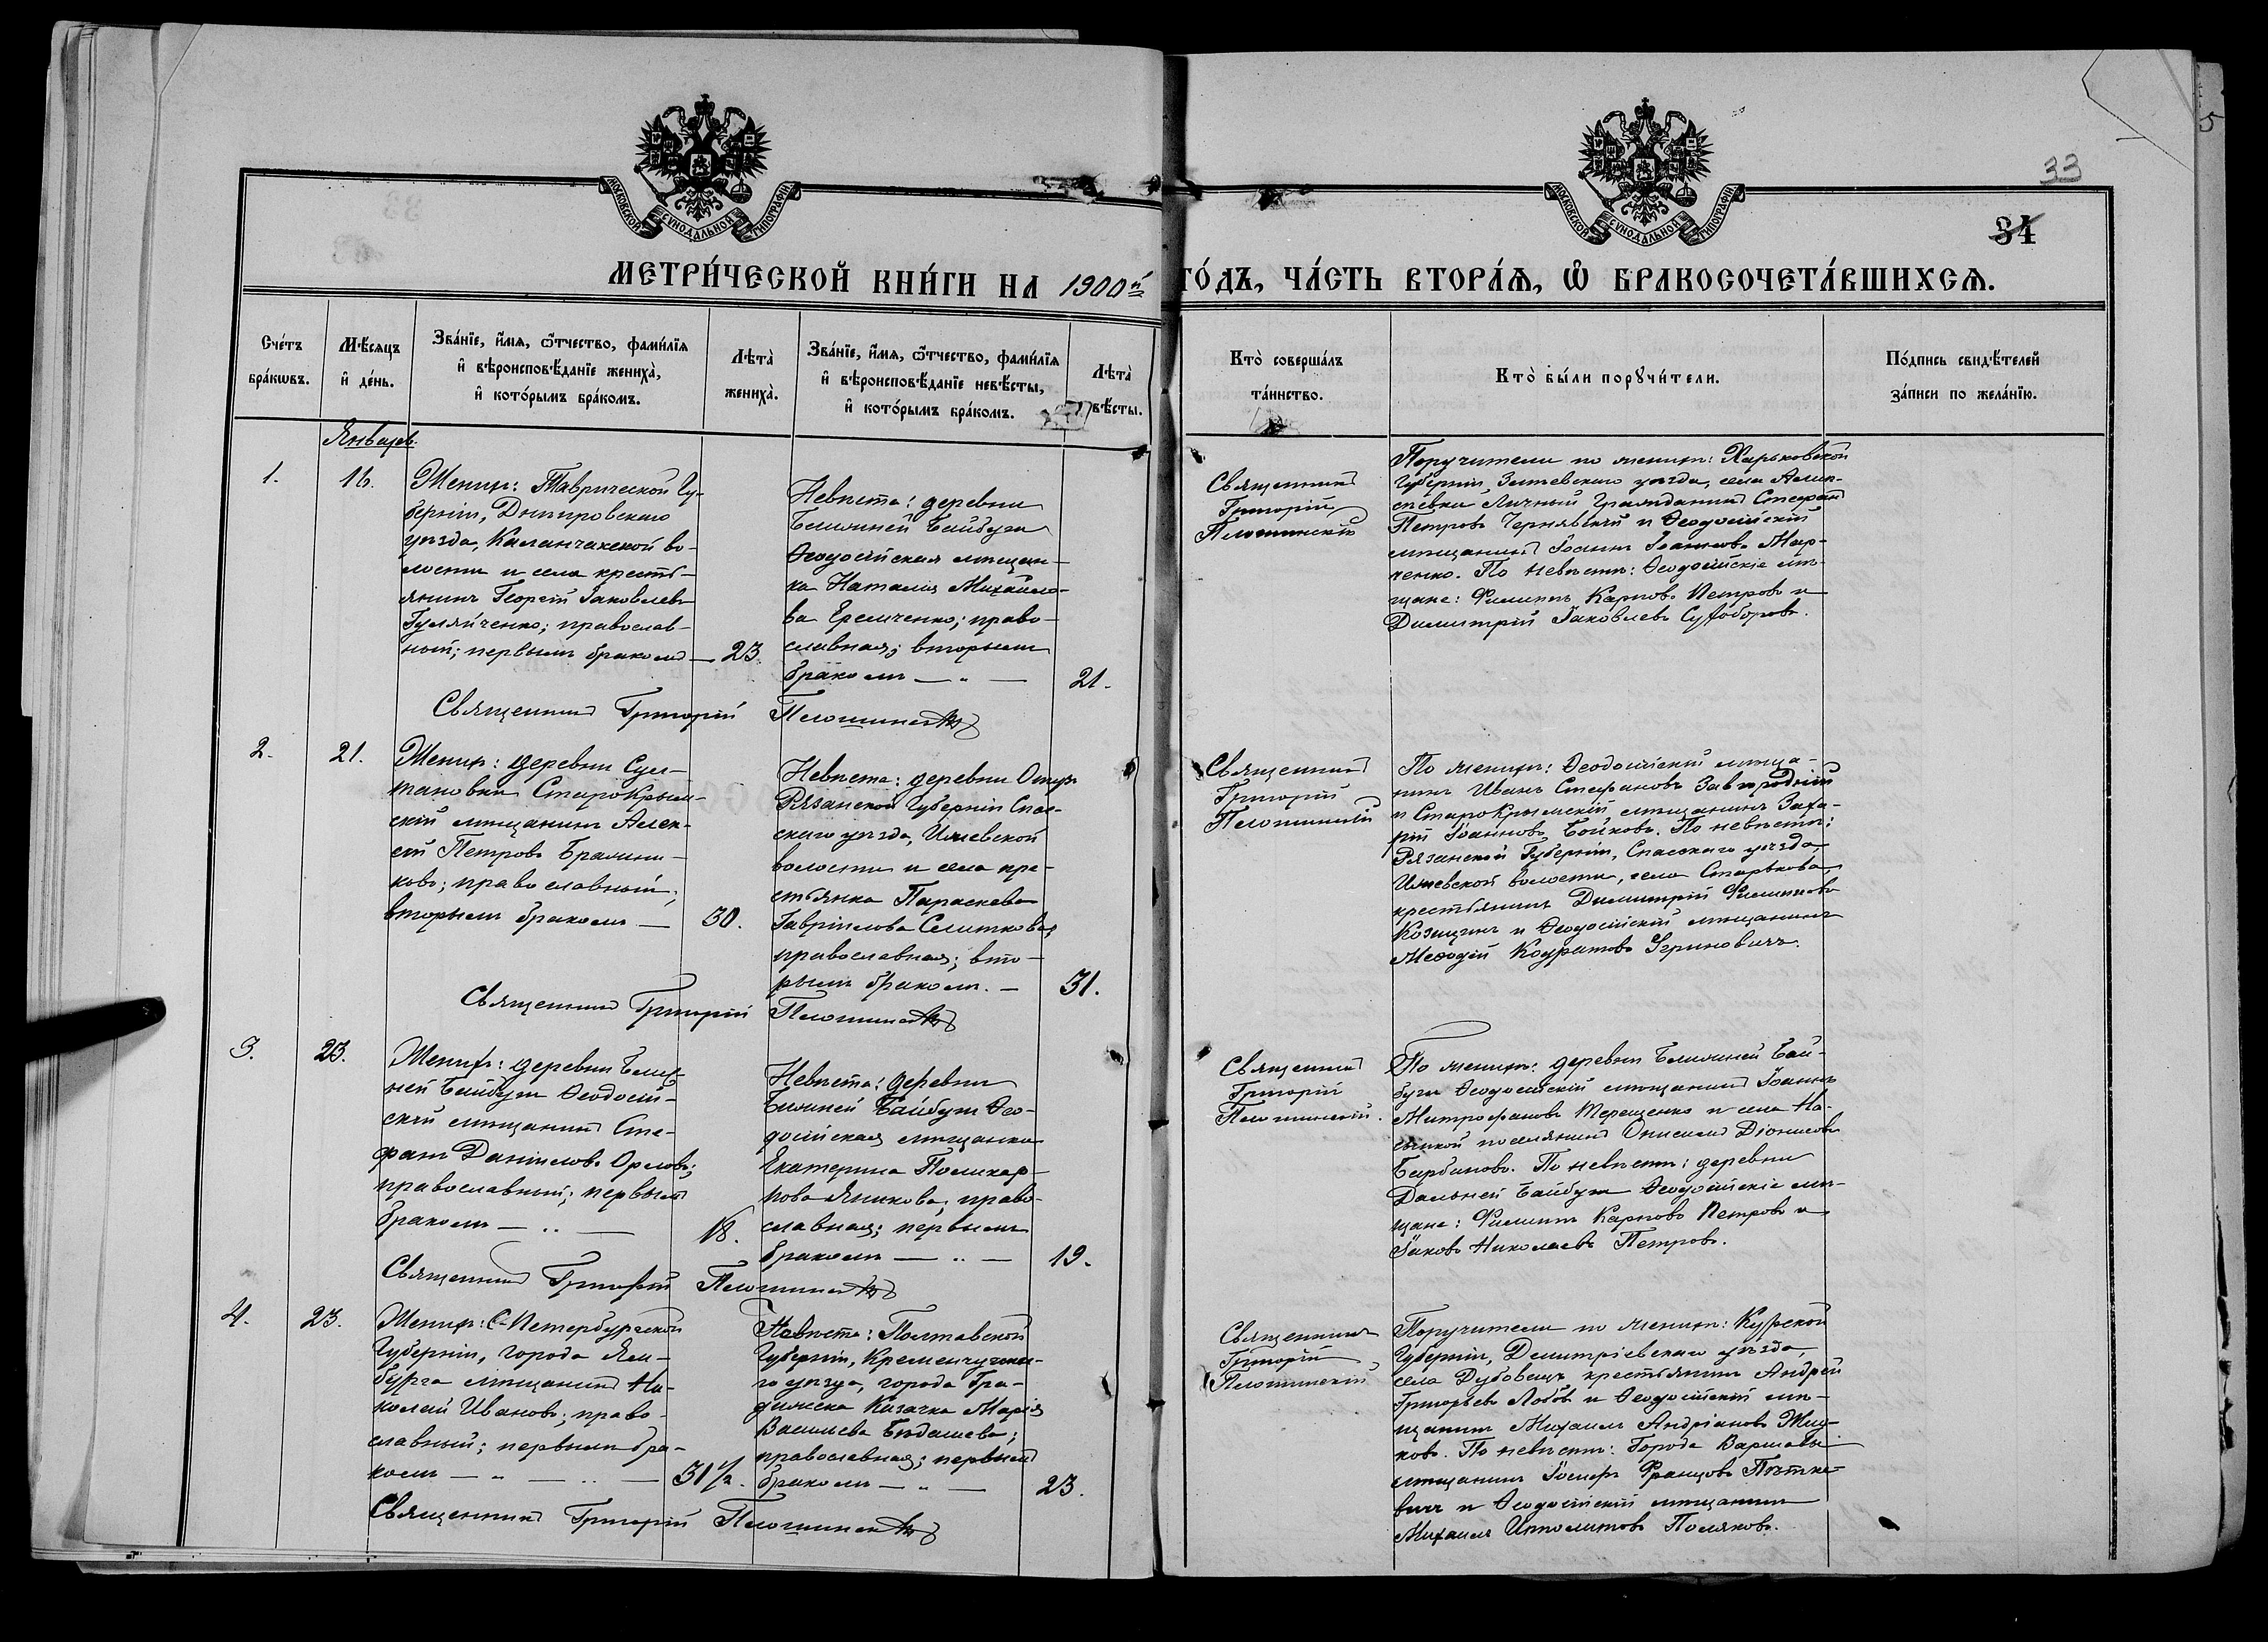 МОСКОВСКОЙ СУНОДАЛЬНОЙ ТИПОГРАФІИ
МОСКОВСКОЙ СУНОДАЛЬНОЙ ТИПОГРАФІИ
33
34
МЕТРИ́ЧЕСКОЙ КНИ́ГИ НА 1900й
ГО́ДЪ, ЧА́СТЬ ВТОРА́Ѧ, Ѡ҆ БРАКОСОЧЕТА́ВШИХСѦ.
Сче́тъ бра́кѡвъ.
Мѣ́сяцъ и҆ де́нь.
Зва́нїе, и҆́мѧ, ѻ҆́тчество, фами́лїѧ
и҆ вѣроисповѣ́данїе жениха̀,
и҆ кото́рымъ бра́комъ.
Лѣта̀ жениха̀.
Зва́нїе, и҆́мѧ, ѻ҆́тчество, фами́лїѧ
и҆ вѣроисповѣ́данїе невѣ́сты,
и҆ кото́рымъ бра́комъ.
Лѣта̀
вѣ́сты.
Кто̀ соверша́лъ
та́инство.
Кто̀ бы́ли порꙋчи́тели.
По́дпись свидѣ́телей
за́писи по жела́нїю.
Январь.
1.
16.
Женихъ: Таврической Гу-
берніи, Днѣпровскаго
уѣзда, Каланчакской во-
лости и села кресть-
янинъ Георгій Іаковлевъ
Гуляйченко; православ-
ный; первымъ бракомъ —
23.
Невѣста: деревни
Ближней Байбуги
Ѳеодосійская мѣщан-
ка Наталія Михайло-
ва Еремченко; право-
славная; вторымъ
бракомъ — „ —
21.
Священникъ Григорій
Поручители по женихѣ: Харьковской
Губерніи, Зміевскаго уѣзда, села Алек-
сѣевки Личный Гражданинъ Стефанъ
Петровъ Чернявскій и Ѳеодосійскій
мѣщанинъ Іоаннъ Іоанновъ Мар-
ченко. По невѣстѣ: Ѳеодосійскіе мѣ-
щане: Филиппъ Карповъ Петровъ и
Димитрій Іаковлевъ Сухоборовъ.
Священникъ Григорій
2.
21.
Женихъ: деревни Сул-
тановки СтароКрым-
скій мѣщанинъ Алек-
сѣй Петровъ Бражни-
ковъ; православный;
вторымъ бракомъ —
30.
Невѣста: деревни Отузъ
Рязанской Губерніи Спас-
скаго уѣзда, Ижевской
волости и села кре-
стьянка Параскева
Гавріилова Селиткова;
православная; вто-
рымъ бракомъ. —
31.
Священникъ Григорій
По женихѣ: Ѳеодосійскій мѣща-
нинъ Иванъ Стефановъ Завгородній
и СтароКрымскій мѣщанинъ Заха-
рій Іоанновъ Бойковъ. По невѣстѣ:
Рязанской Губерніи, Спасскаго уѣзда,
Ижевской волости, села Старькова,
крестьянинъ Димитрій Филипповъ
Козицинъ и Ѳеодосійскій мѣщанинъ
Меѳодій Кодратовъ
Священникъ Григорій
3.
23.
Женихъ: деревни Ближ-
ней Байбуги Ѳеодосій-
скій мѣщанинъ Сте-
фанъ Даніиловъ Орловъ;
православный; первымъ
бракомъ — „ —
18.
Невѣста: деревни
Ближней Байбуги Ѳео-
досійская мѣщанка
Екатерина Поликар-
пова Яникова; право-
славная; первымъ
бракомъ — „ —
19.
Священникъ Григорій
По женихѣ: деревни Ближней Бай-
буги Ѳеодосійскій мѣщанинъ Іоаннъ
Митрофановъ Терещенко и села На-
сыпкой поселянинъ Онисимъ Діонисовъ
Барбановъ. По невѣстѣ: деревни
Дальней Байбуги Ѳеодосійскіе мѣ-
щане: Филиппъ Карповъ Петровъ и
Іаковъ Николаевъ Петровъ.
Священникъ Григорій
4.
23.
Женихъ: С-Петербургской
Губерніи, города Ям-
бурга мѣщанинъ Ни-
колай Ивановъ; право-
славный; первымъ бра-
комъ — „ — „ —
31½.
Невѣста: Полтавской
Губерніи, Кременчугска-
го уѣзда, города Гра-
дижска Казачка Марія
Васильева Бѣдашева;
православная; первымъ
бракомъ — „ —
23.
Священникъ Григорій
Поручители по женихѣ: Курской
Губерніи, Дмитріевскаго уѣзда,
села Дубовецъ, крестьянинъ Андрей
Григорьевъ Лобовъ и Ѳеодосійскій мѣ-
щанинъ Михаилъ Андріановъ Жид-
ковъ. По невѣстѣ: Города Варшавы
мѣщанинъ Іосифъ Францовъ Пѣтке-
вичъ и Ѳеодосійскій мѣщанинъ
Михаилъ Ипполитовъ Поляковъ.
Священникъ Григорій